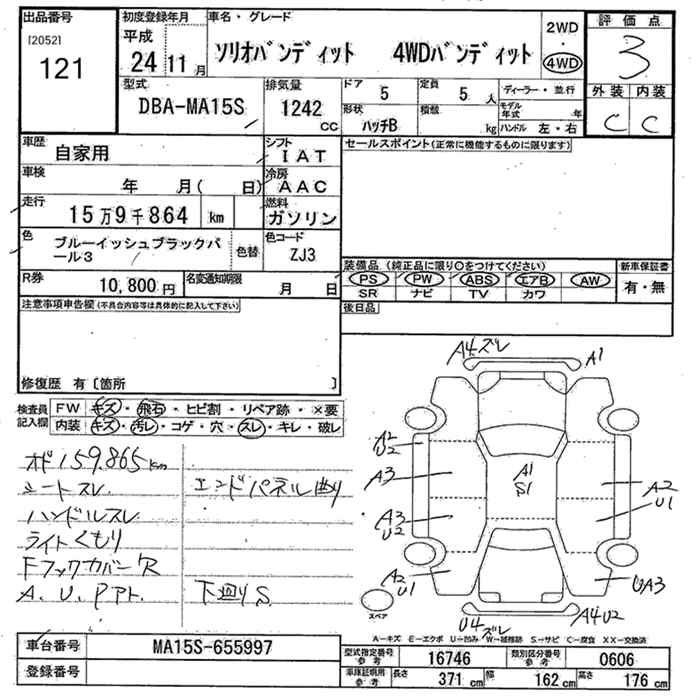 出品番号 初度登録年月 車名・グレード 2WD・4WD 評価点
[2052] 121
平成 24 11月 ソリオバンディット 4WDバンディット 3
型式 排気量 ドア 5 定員 5人 ディーラー・並行 外装 内装
DBA-MA15S 1242cc 形状 ハッチB 積載 kg モデル年式 年 ハンドル 左・右 C C
車歴 自家用 シフト IAT セールスポイント(正常に機能するものに限ります)
車検 年 月( 日) 冷房 AAC
走行 15万9千864 km 燃料 ガソリン
色 ブルーイッシュブラックパール3 色替 色コード ZJ3
R券 10,800円 名変通知期限 月 日
装備品(純正品に限り○をつけてください) 新車保証書
PS PW ABS エアB AW 有・無
SR ナビ TV カワ
注意事項申告欄(不具合内容等は具体的に記入して下さい) 後日品
修復歴 有〔箇所 〕
検査員記入欄 FW キズ・飛石・ヒビ割・リペア跡・×要
内装 キズ・汚レ・コゲ・穴・スレ・キレ・破レ
オド159.865km
シートスレ エンドパネル曲り
ハンドルスレ
ライトくもり
Fフックカバー欠
A、U、Pアト、 下廻りS
A4ズレ A1
A2 U2
A3 A1 S1 A2
A3 U2 U1
A2 U1 UA3
スペア U4ズレ A4U2
A-キズ E-エクボ U-凹み W-補修跡 S-サビ C-腐食 XX-交換済
車台番号 MA15S-655997 型式指定番号 参考 16746 類別区分番号 参考 0606
登録番号 車庫証明用 参考 長さ 371 cm 幅 162 cm 高さ 176 cm